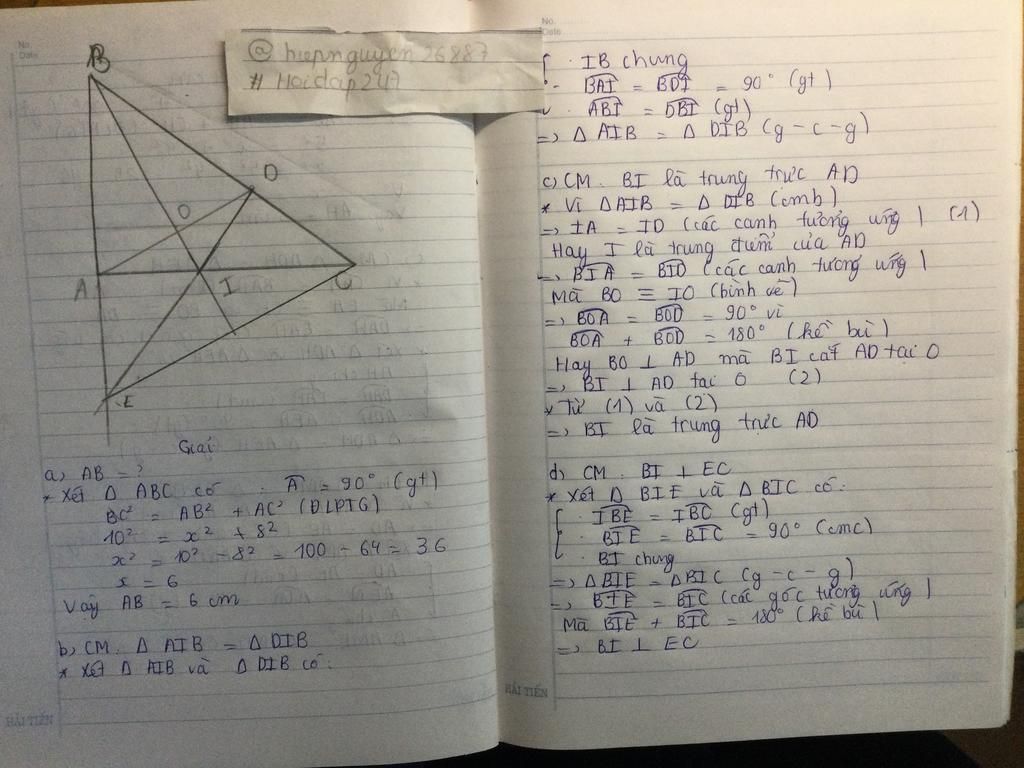 No.
Date
@ hiepnguyen26887
# Hoidap247
B
D
O
A
I
C
E
Giải
a, AB = ?
* Xét Δ ABC có : Â = 90° (gt)
BC² = AB² + AC² (ĐLPTG)
10² = x² + 8²
x² = 10² - 8² = 100 - 64 = 36
x = 6
Vậy AB = 6 cm
b, CM. Δ AIB = Δ DIB
* Xét Δ AIB và Δ DIB có:
HẢI TIẾN
No.
Date
. IB chung
- BAI = BDI = 90° (gt)
. ABI = DBI (gt)
=> Δ AIB = Δ DIB (g-c-g)
c, CM. BI là trung trực AD
* Vì Δ AIB = Δ DIB (cmb)
=> IA = ID (các cạnh tương ứng) (1)
Hay I là trung điểm của AD
=> BIA = BID (các cạnh tương ứng)
Mà BO ≡ IO (hình vẽ)
=> BOA = BOD = 90° vì
BOA + BOD = 180° (kề bù)
Hay BO ⊥ AD mà BI cắt AD tại O
=> BI ⊥ AD tại O (2)
* Từ (1) và (2)
=> BI là trung trực AD
d, CM. BI ⊥ EC
* Xét Δ BIE và Δ BIC có:
. IBE = IBC (gt)
. BIE = BIC = 90° (cmc)
. BI chung
=> Δ BIE = Δ BIC (g-c-g)
=> BIE = BIC (các góc tương ứng)
Mà BIE + BIC = 180° (kề bù)
=> BI ⊥ EC
HẢI TIẾN